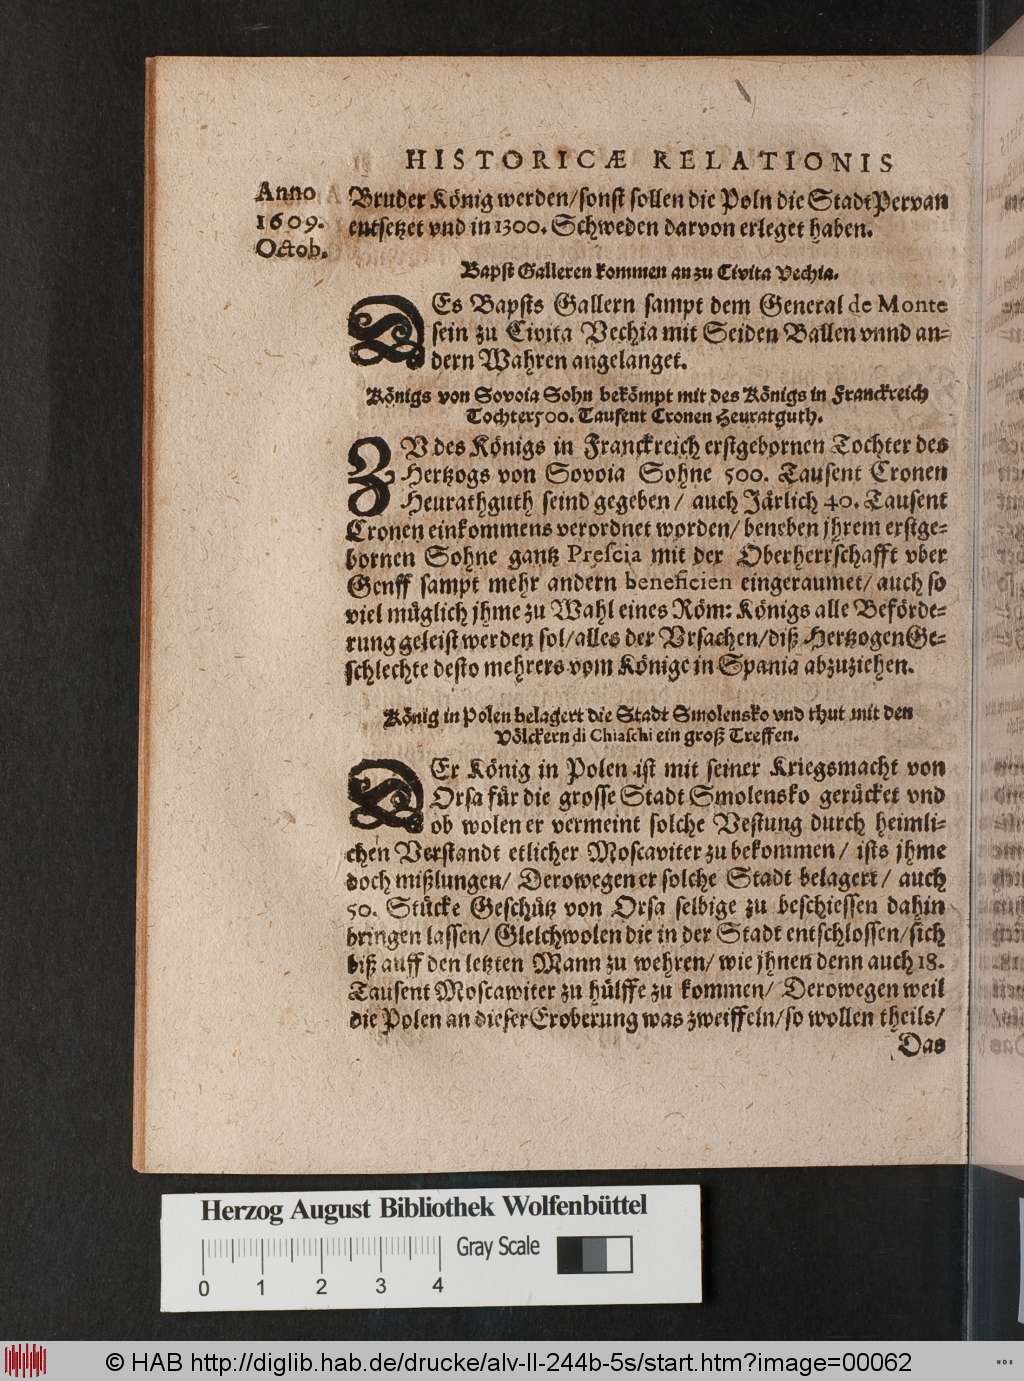 HISTORICÆ RELATIONIS
Anno
1609.
Octob.
Bruder König werden/sonst sollen die Poln die Stadt Pervan
entsetzet vnd in 1300. Schweden darvon erleget haben.
Bapst Galleren kommen an zu Civita Vechia.
DEs Bapsts Gallern sampt dem General de Monte
sein zu Civita Vechia mit Seiden Ballen vnnd an-
dern Wahren angelanget.
Königs von Sovoia Sohn bekömpt mit des Königs in Franckreich
Tochter 500. Tausent Cronen Heuratguth.
ZV des Königs in Franckreich erstgebornen Tochter des
Hertzogs von Sovoia Sohne 500. Tausent Cronen
Heurathguth seind gegeben/ auch Järlich 40. Tausent
Cronen einkommens verordnet worden/ beneben jhrem erstge-
bornen Sohne gantz Prescia mit der Oberherrschafft vber
Genff sampt mehr andern beneficien eingeraumet/ auch so
viel müglich jhme zu Wahl eines Röm: Königs alle Beförde-
rung geleist werden sol/alles der Vrsachen/diß Hertzogen Ge-
schlechte desto mehrers vom Könige in Spania abzuziehen.
König in Polen belagert die Stadt Smolensko vnd thut mit den
Völckern di Chiaschi ein groß Treffen.
DEr König in Polen ist mit seiner Kriegsmacht von
Orsa für die grosse Stadt Smolensko gerücket vnd
ob wolen er vermeint solche Vestung durch heimli-
chen Verstandt etlicher Moscaviter zu bekommen/ ists jhme
doch mißlungen/ Derowegen er solche Stadt belagert/ auch
50. Stücke Geschütz von Orsa selbige zu beschiessen dahin
bringen lassen/ Gleichwolen die in der Stadt entschlossen/sich
biß auff den letzten Mann zu wehren/ wie jhnen denn auch 18.
Tausent Moscawiter zu hülffe zu kommen/ Derowegen weil
die Polen an dieser Eroberung was zweiffeln/so wollen theils/
Das
Herzog August Bibliothek Wolfenbüttel
Gray Scale
0 1 2 3 4
© HAB http://diglib.hab.de/drucke/alv-ll-244b-5s/start.htm?image=00062